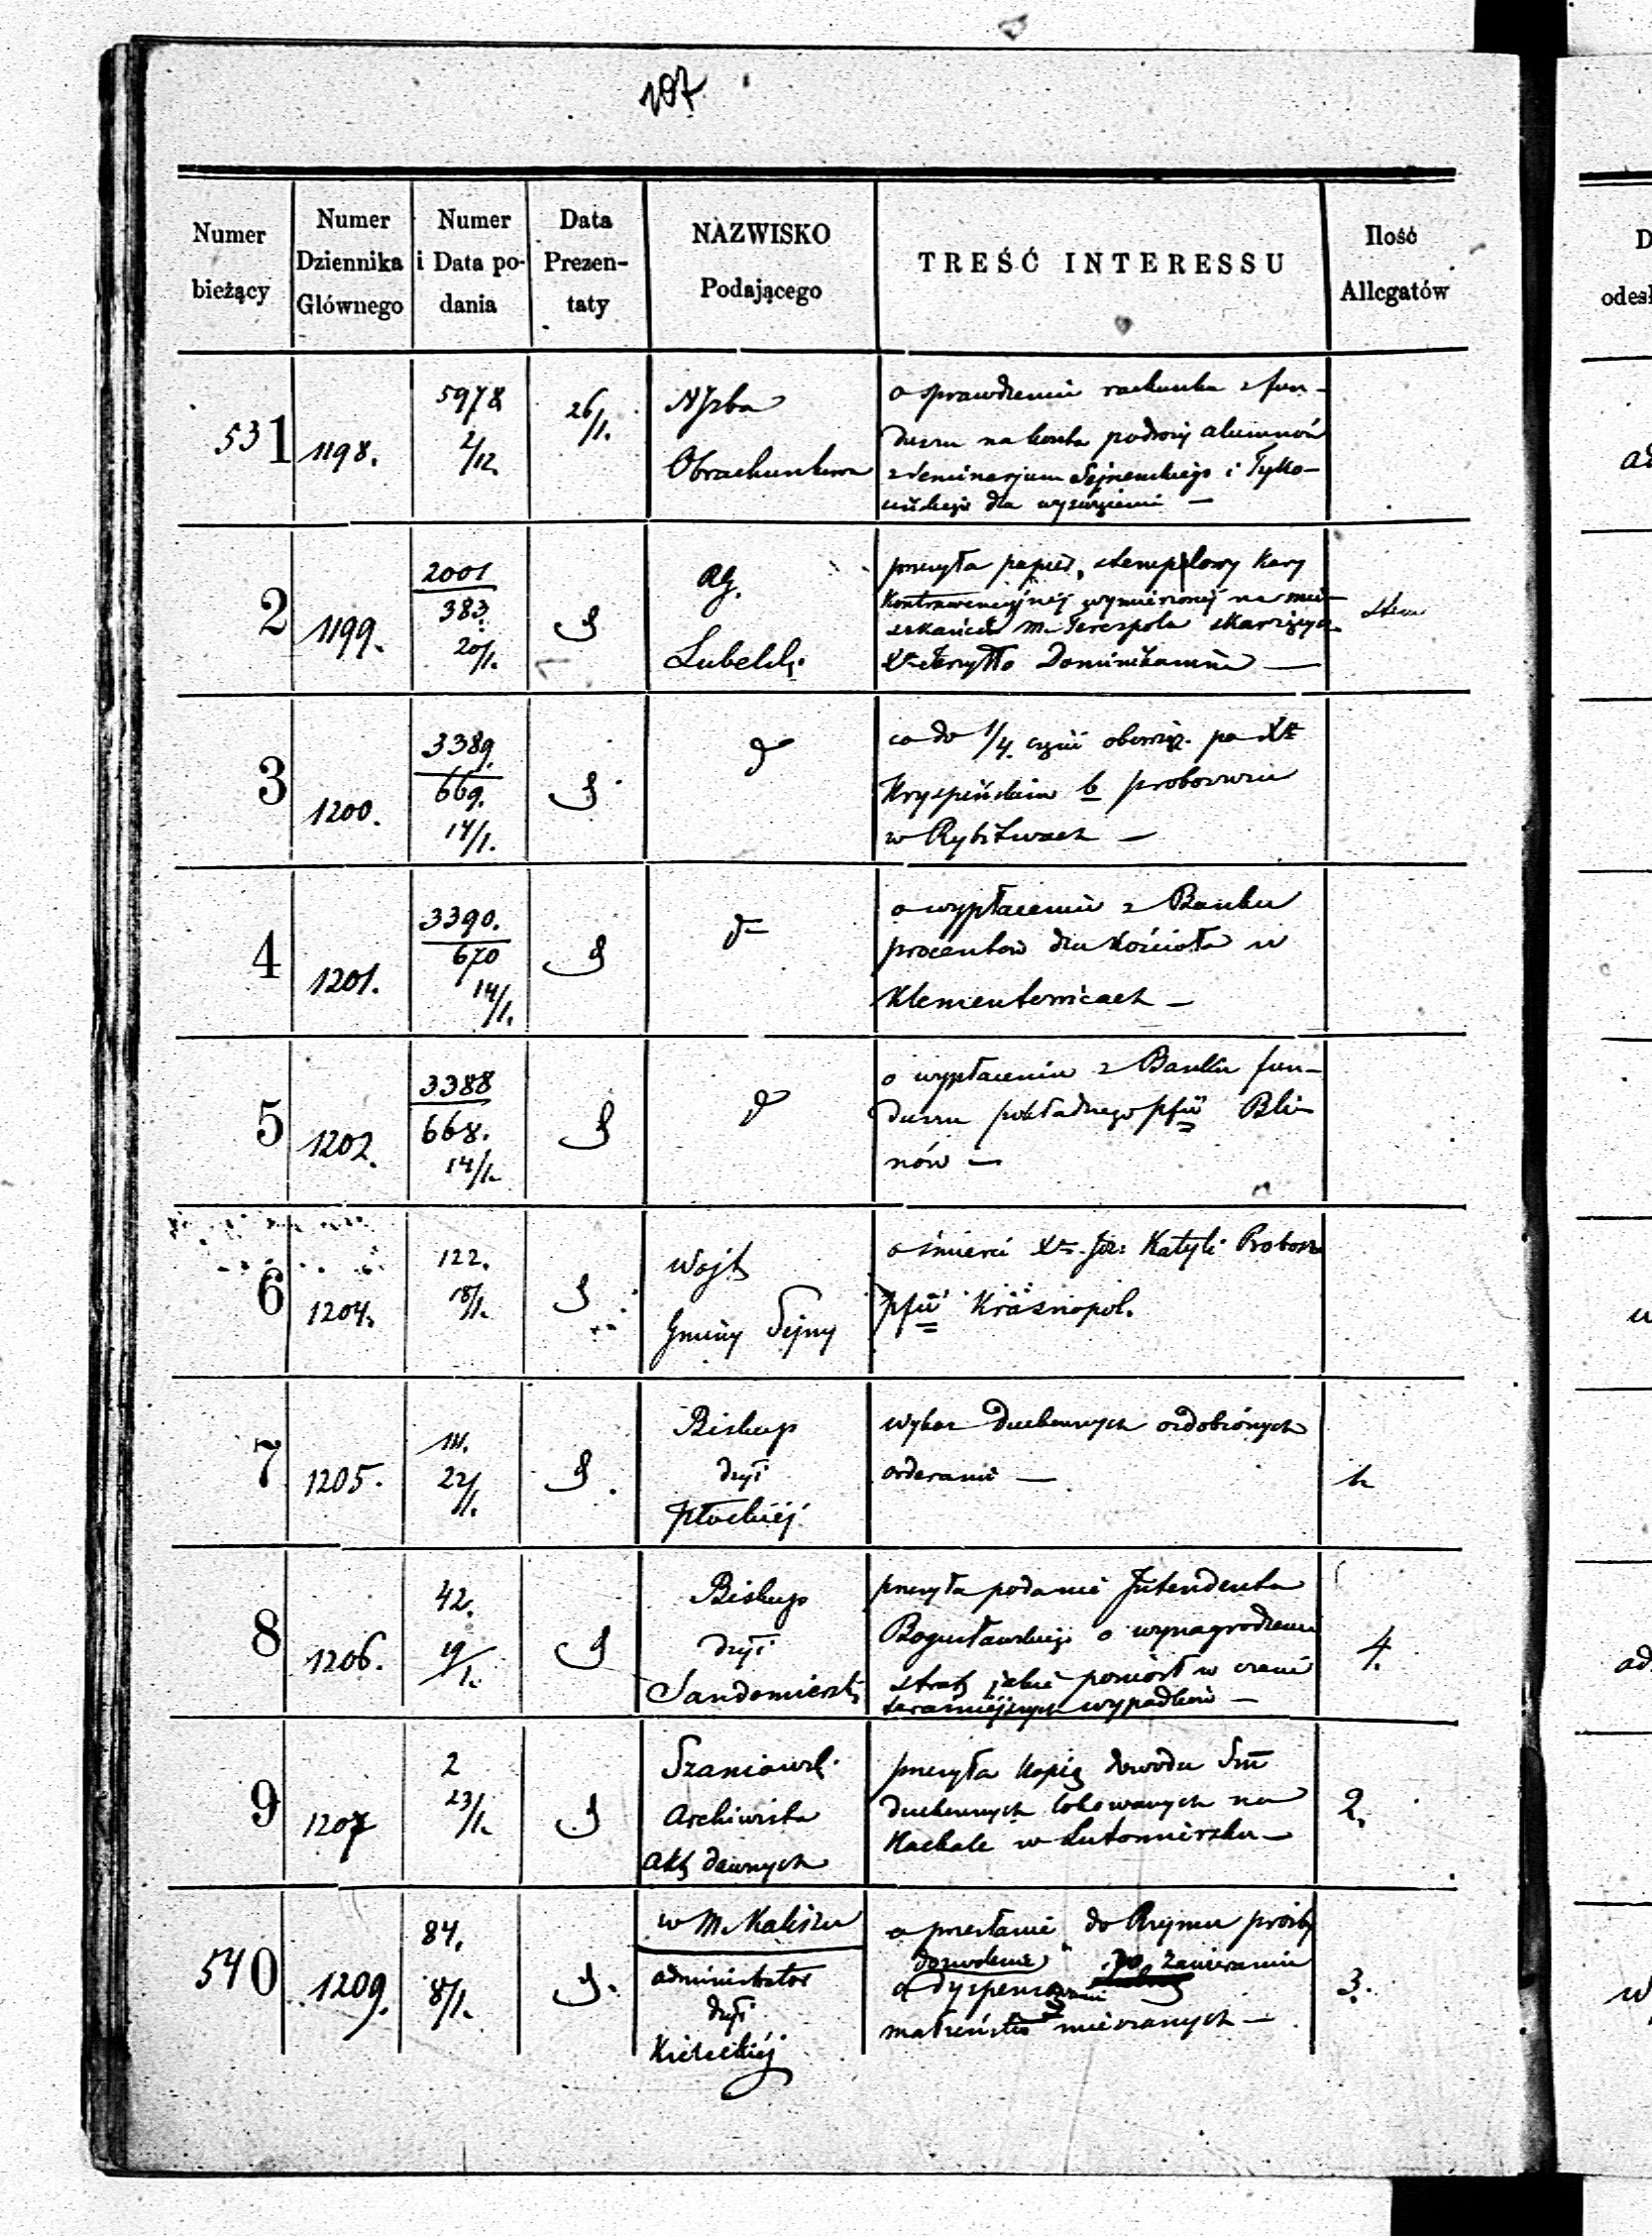 107
Numer bieżący
Numer Dziennika Głównego
Numer i Data podania
Data Prezentaty
NAZWISKO Podającego
TREŚĆ INTERESSU
Ilość Allegatów
531
1198.
5978
2/12.
26/1.
Obrachunkowa
o sprawdzeniu rachunku z fun-
duszu na koszta podroży alumnów
z Seminarjum Sejneńskiego i Tyko-
cińskiego dla
2
1199.
2001
383.
20/1.
Lubelsk.
przesyła papier stemplowy Kary
Kontrawencyjnej wymierzonej na miesz-
kańców m. Terespola skarżących
Dominikanów —
3
1200.
3389.
669.
14/1.
co do 1/4 części obowiąz. po Xs
Kryspińskim b proboszczu
w Rybitwach —
4
1201.
3390.
670
14/1.
o wypłacenie z Banku
procentów dla Kościoła w
Klementowicach —
5
1202.
3388
668.
14/1.
o wypłacenie z Banku fun-
duszu pokładnego pfii Bli-
nów —
6
1204.
122.
18/1.
Wójt
Gminy Sejny
o śmierci Katyli Probosz
pfii Krasnopol.
7
1205.
22/1.
Biskup
dyi
Płockiéj
wykaz duchownych ozdobionych
orderami —
8
1206.
42.
19/1.
Biskup
dyi
Sandomiersk
przesyła podanie Intendenta
Bogusławskiego o wynagrodzenie
strat jakie poniósł w czasie
teraźniejszych wypadków —
4.
9
1207
2
23/1.
Szaniawsk.
Archiwista
Akt dawnych
przesyła kopię dowodu Sm
duchownych lokowanych na
Kachale w Lutomiersku —
2.
540
1209.
84.
8/1.
w M. Kaliszu
administrator
dyi
Kieleckiéj
o przesłanie do Rzymu prośby
dozwolenie do zawierania
małżeństw mieszanych —
3.